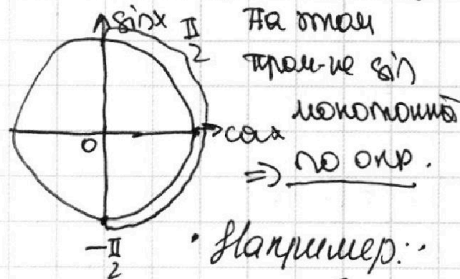 sinx
π/2
На этом
пром-ке sin
монотонна
cosx
0
⇒ по опр.
-π/2
• Например: